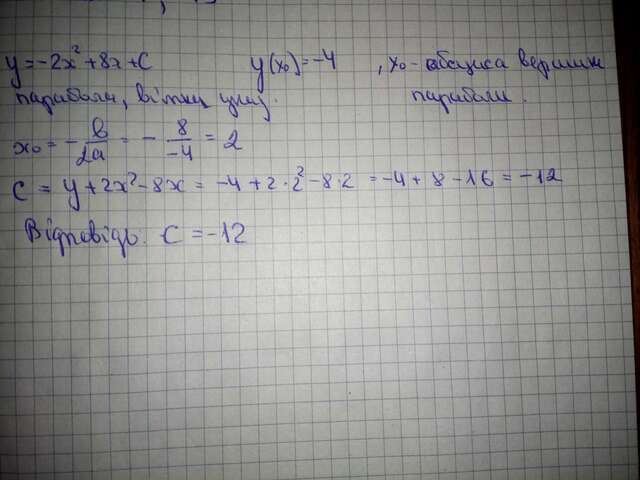 y = -2x² + 8x + c y(x₀) = -4 , x₀ - абсциса вершини
параболи, вітки униз. параболи.
x₀ = - в/2a = - 8/-4 = 2
c = y + 2x² - 8x = -4 + 2·2² - 8·2 = -4 + 8 - 16 = -12
Відповідь: c = -12